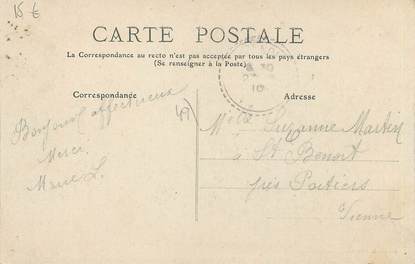 15 €
CARTE POSTALE
La Correspondance au recto n'est pas acceptée par tous les pays étrangers
(Se renseigner à la Poste)
Correspondance
Adresse
10
Bonjour affectueux
Merci
49
Melle Suzanne Martin
à St Benoit
près Poitiers
Vienne